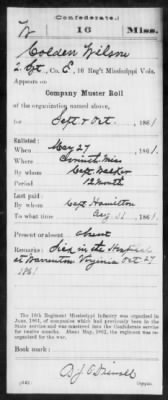 Confederate.
W 16 Miss.
Colden Wilson
2 Sgt, Co. E, 16 Reg't Mississippi Vols.
Appears on
Company Muster Roll
of the organization named above,
for Sept & Oct, 1861
Enlisted:
When May 27, 1861
Where Summit Miss
By whom Capt
Period 12 Month
Last paid:
By whom Capt Hamilton
To what time Aug 31, 1861
Present or absent Absent
Remarks: Died in the Hospital
at Warrenton Virginia Oct 27
1861
The 16th Regiment Mississippi Infantry was organized in
June, 1861, of companies which had previously been in the
State service and was mustered into the Confederate service
for twelve months. About May, 1862, the regiment was re-
organized for the war.
Book mark:
(642) Copyist.